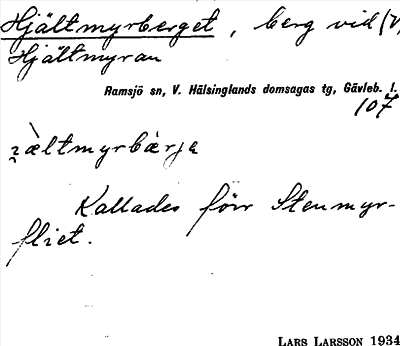 Hjältmyrberget, berg vid (V)
Hjältmyran
Ramsjö sn, V. Hälsinglands domsagas tg, Gävleb. l.
107
Kallades förr Stenmyr-
fliet.
LARS LARSSON 1934